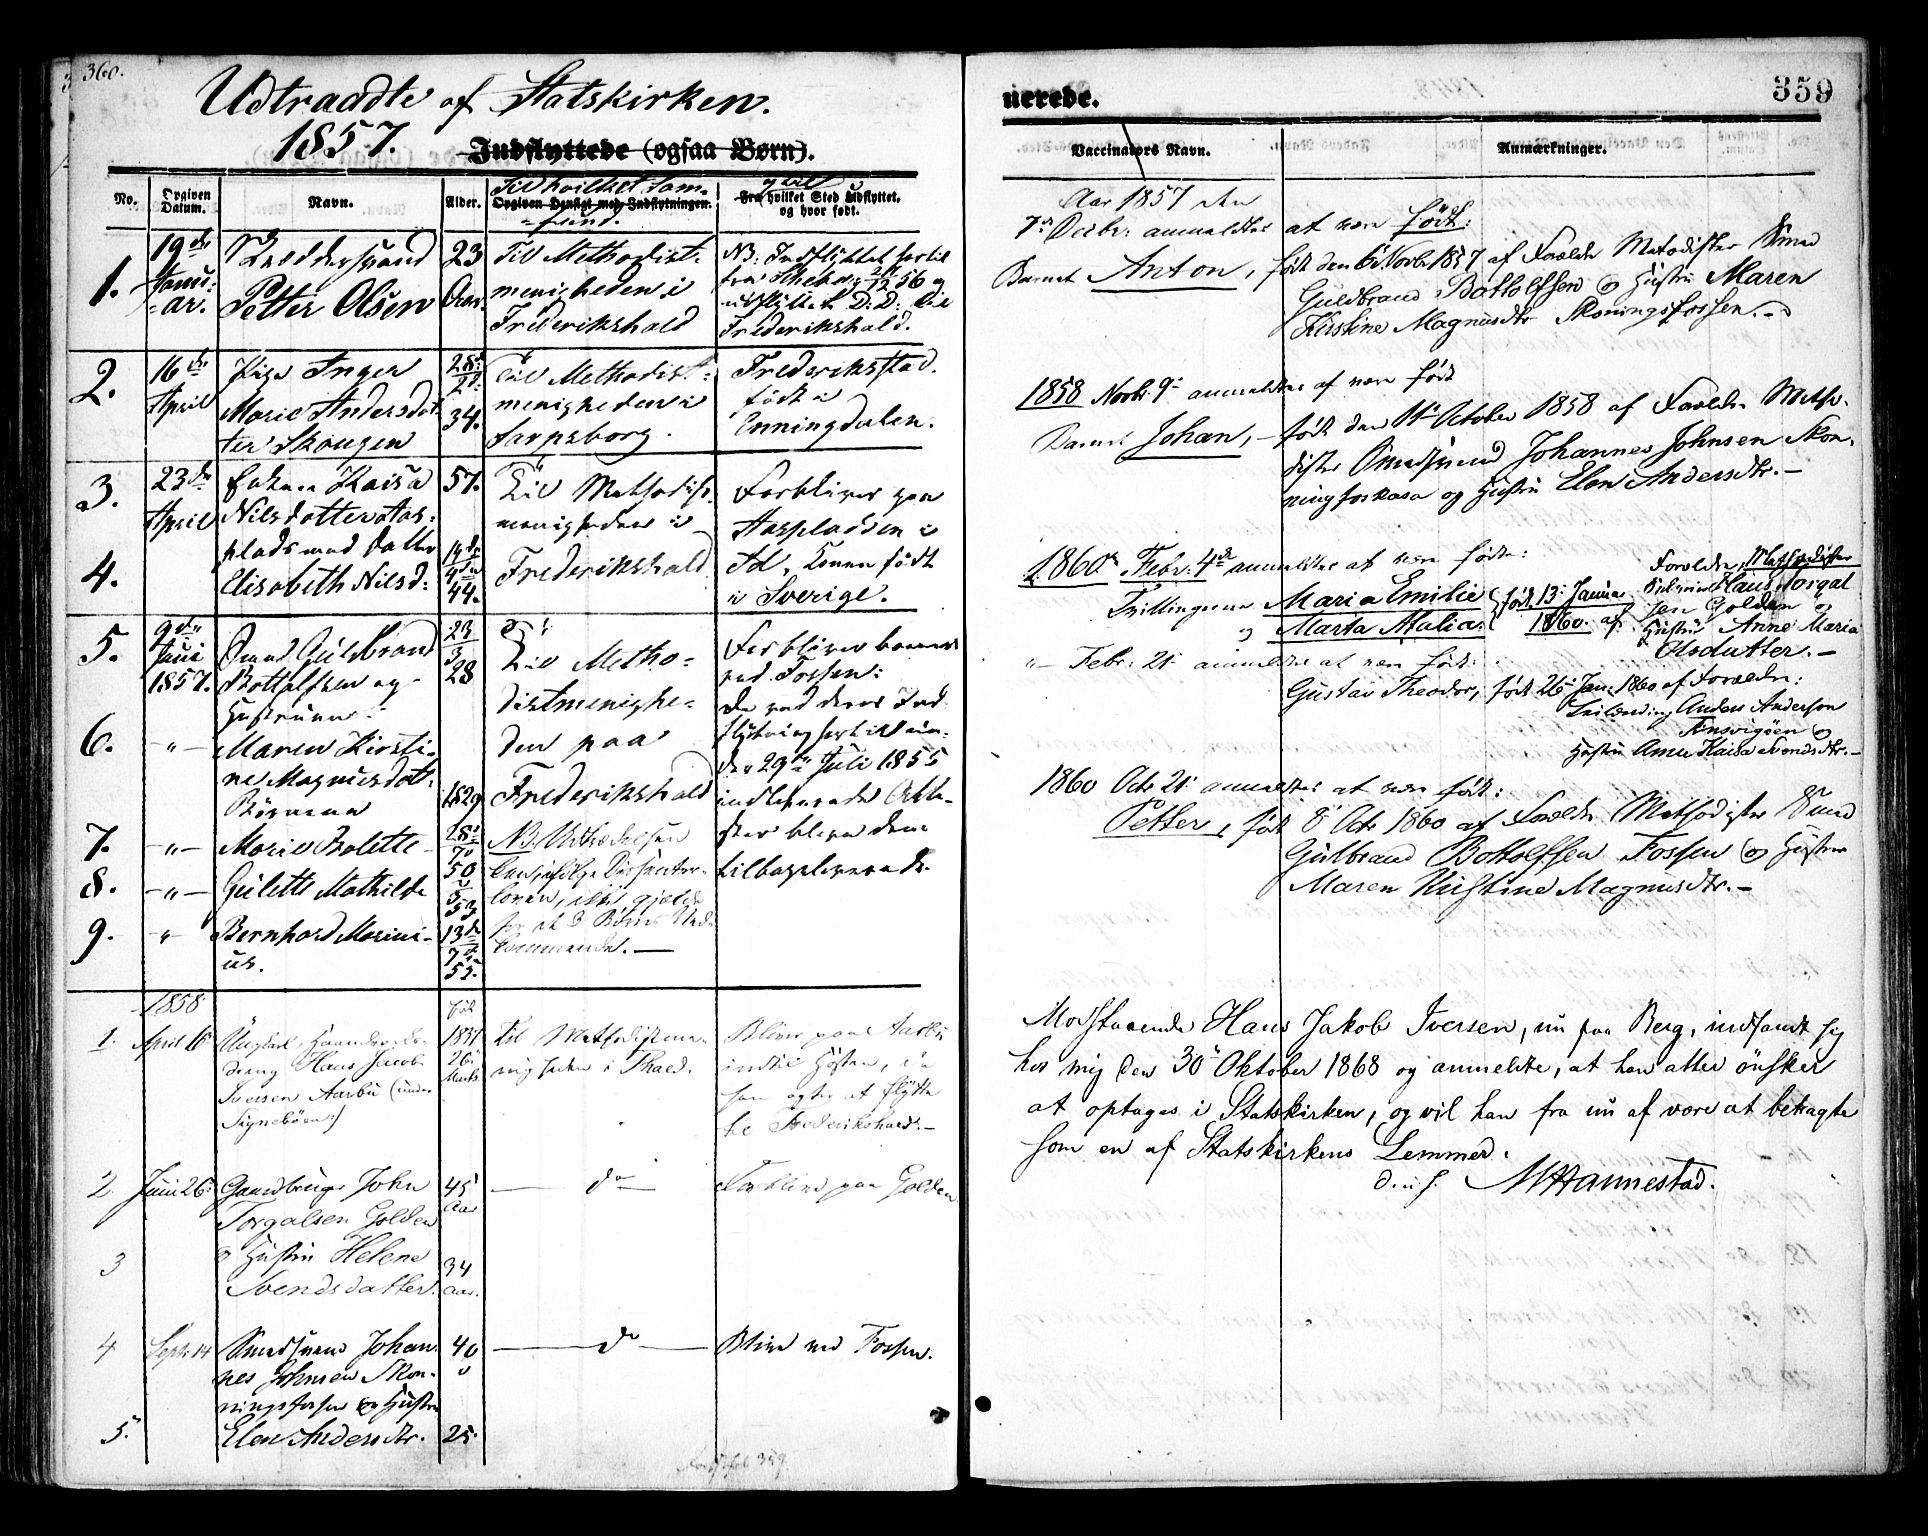 360.
Udtraadte af Statskirken.
1857. Indflyttede (ogsaa Børn).
No.
Opgiven Datum.
Navn.
Alder.
Til hvilket Sam-
Opgiven Hensigt med Indflytningen.
=fund.
Fra hvilket Sted Udflyttet,
og hvor født.
1.
19de
Janu-
ar.
Skræddersvend
Petter Olsen
23
Aar.
Til Methodist-
menigheden i
Frederikshald
NB. Indflyttet hertil
udflyttet D.D. til
Frederikshald.
2.
16de
April
Pige Inger
Marie Andersdat
ter Skougen
28de
34.
Til Methodist-
menigheden i
Sarpsborg.
Frederiksstad.
født i
Enningdalen.
3.
23de
April
Enken Kaisa
Nilsdotter Aas-
plads med Datter
57.
Til Methodist
menigheden i
Frederikshald
Forbliver paa
Aaspladsen i
Id, Konen født
i Sverige.
4.
Elisabeth Nilsd:
44.
5.
9de
Juni
1857.
Smed Guldbrand
Bottolfsen og
Hustruen:
23
3
28
Til Metho-
distmenighe-
den paa
Frederikshald
Forbliver boende
ved Fossen:
De ved deres Ind
flytning hertil
den 29de Juli 1855
indleverede Atte-
ster bleve dem
tilbageleverede.
6.
-"-
Maren Kirsti-
ne Magnusdat:
Børnene
1829
7.
-"-
Marie Bolette
50
NB. Udtrædelsen
8.
-"-
Gulette Mathilde
53
9.
-"-
Bernhard Marini-
us.
13de
55.
for de 3 Børns Ved-
kommende.—
1858
1.
April 16
Hans Jacob
Iversen Aarbu (under
Signebøen:)
født
1831
26
Marts
Til Methodistme-
nigheden i Fhald.
Bliver paa Aarbu
indtil Høsten, da
han agter at flytte
til Frederikshald.—
2
Juni 26
Gaardbruger John
Torgalsen Golden
45
Aar
do
Forbliver paa Golden
3
og Hustru Helene
Svendsdatter.
34
Aar.
4
Septr 14
Smedsvend Johan
nes Johnsen Skon-
ningsfossen og Hustru
40
do
Bliver ved Fossen.
5.
Elen Andersdtr.
25
359
nerede.
Vaccinateurs Navn.
Anmærkninger.
Aar 1857 den
7de Decbr. anmeldtes at være født:
Barnet Anton, født den 6te Novbr 1857 af Forældre Metodister Smed
Guldbrand Bottolfsen og Hustru Maren
Kirstine Magnusdtr Skoningsfossen.—
1858 Novbr. 9de anmeldtes at være født
Barnet Johan, — født den 11te October 1858 af Forældre Metho-
dister Smedsvend Johannes Johnsen Skon-
ningfossen og Hustru Elen Andersdtr.—
1860 Febr. 4de anmeldtes at være født:
Tvillingerne Maria Emilie
og Marta Atalia
født 13 Januar
1860 af
Forældre, Methodister
Hans Torgal
sen Golden og
Hustru Anne Maria
Olsdatter.—
"— Febr. 21 anmeldtes at være født:
Gustav Theodor, født 26 Jan. 1860 af Forældre:
Anders Anderson
Tensvigøen og
Hustru Anna Kaisa Svendsdtr.—
1860 Octr 21 anmeldtes at være født:
Petter, født 8 Octr 1860 af Forældre Methodister Smed
Gulbrand Bottolfsen Fossen og Hustru
Maren Kirstine Magnusdtr.—
Modstaaende Hans Jakob Iversen, nu paa Berg, indfandt sig
hos mig den 30te Oktober 1868 og anmeldte, at han atter ønsker
at optages i Statskirken, og vil han fra nu af være at betragte
som en af Statskirkens Lemmer.
d.u.s. MHannestad.